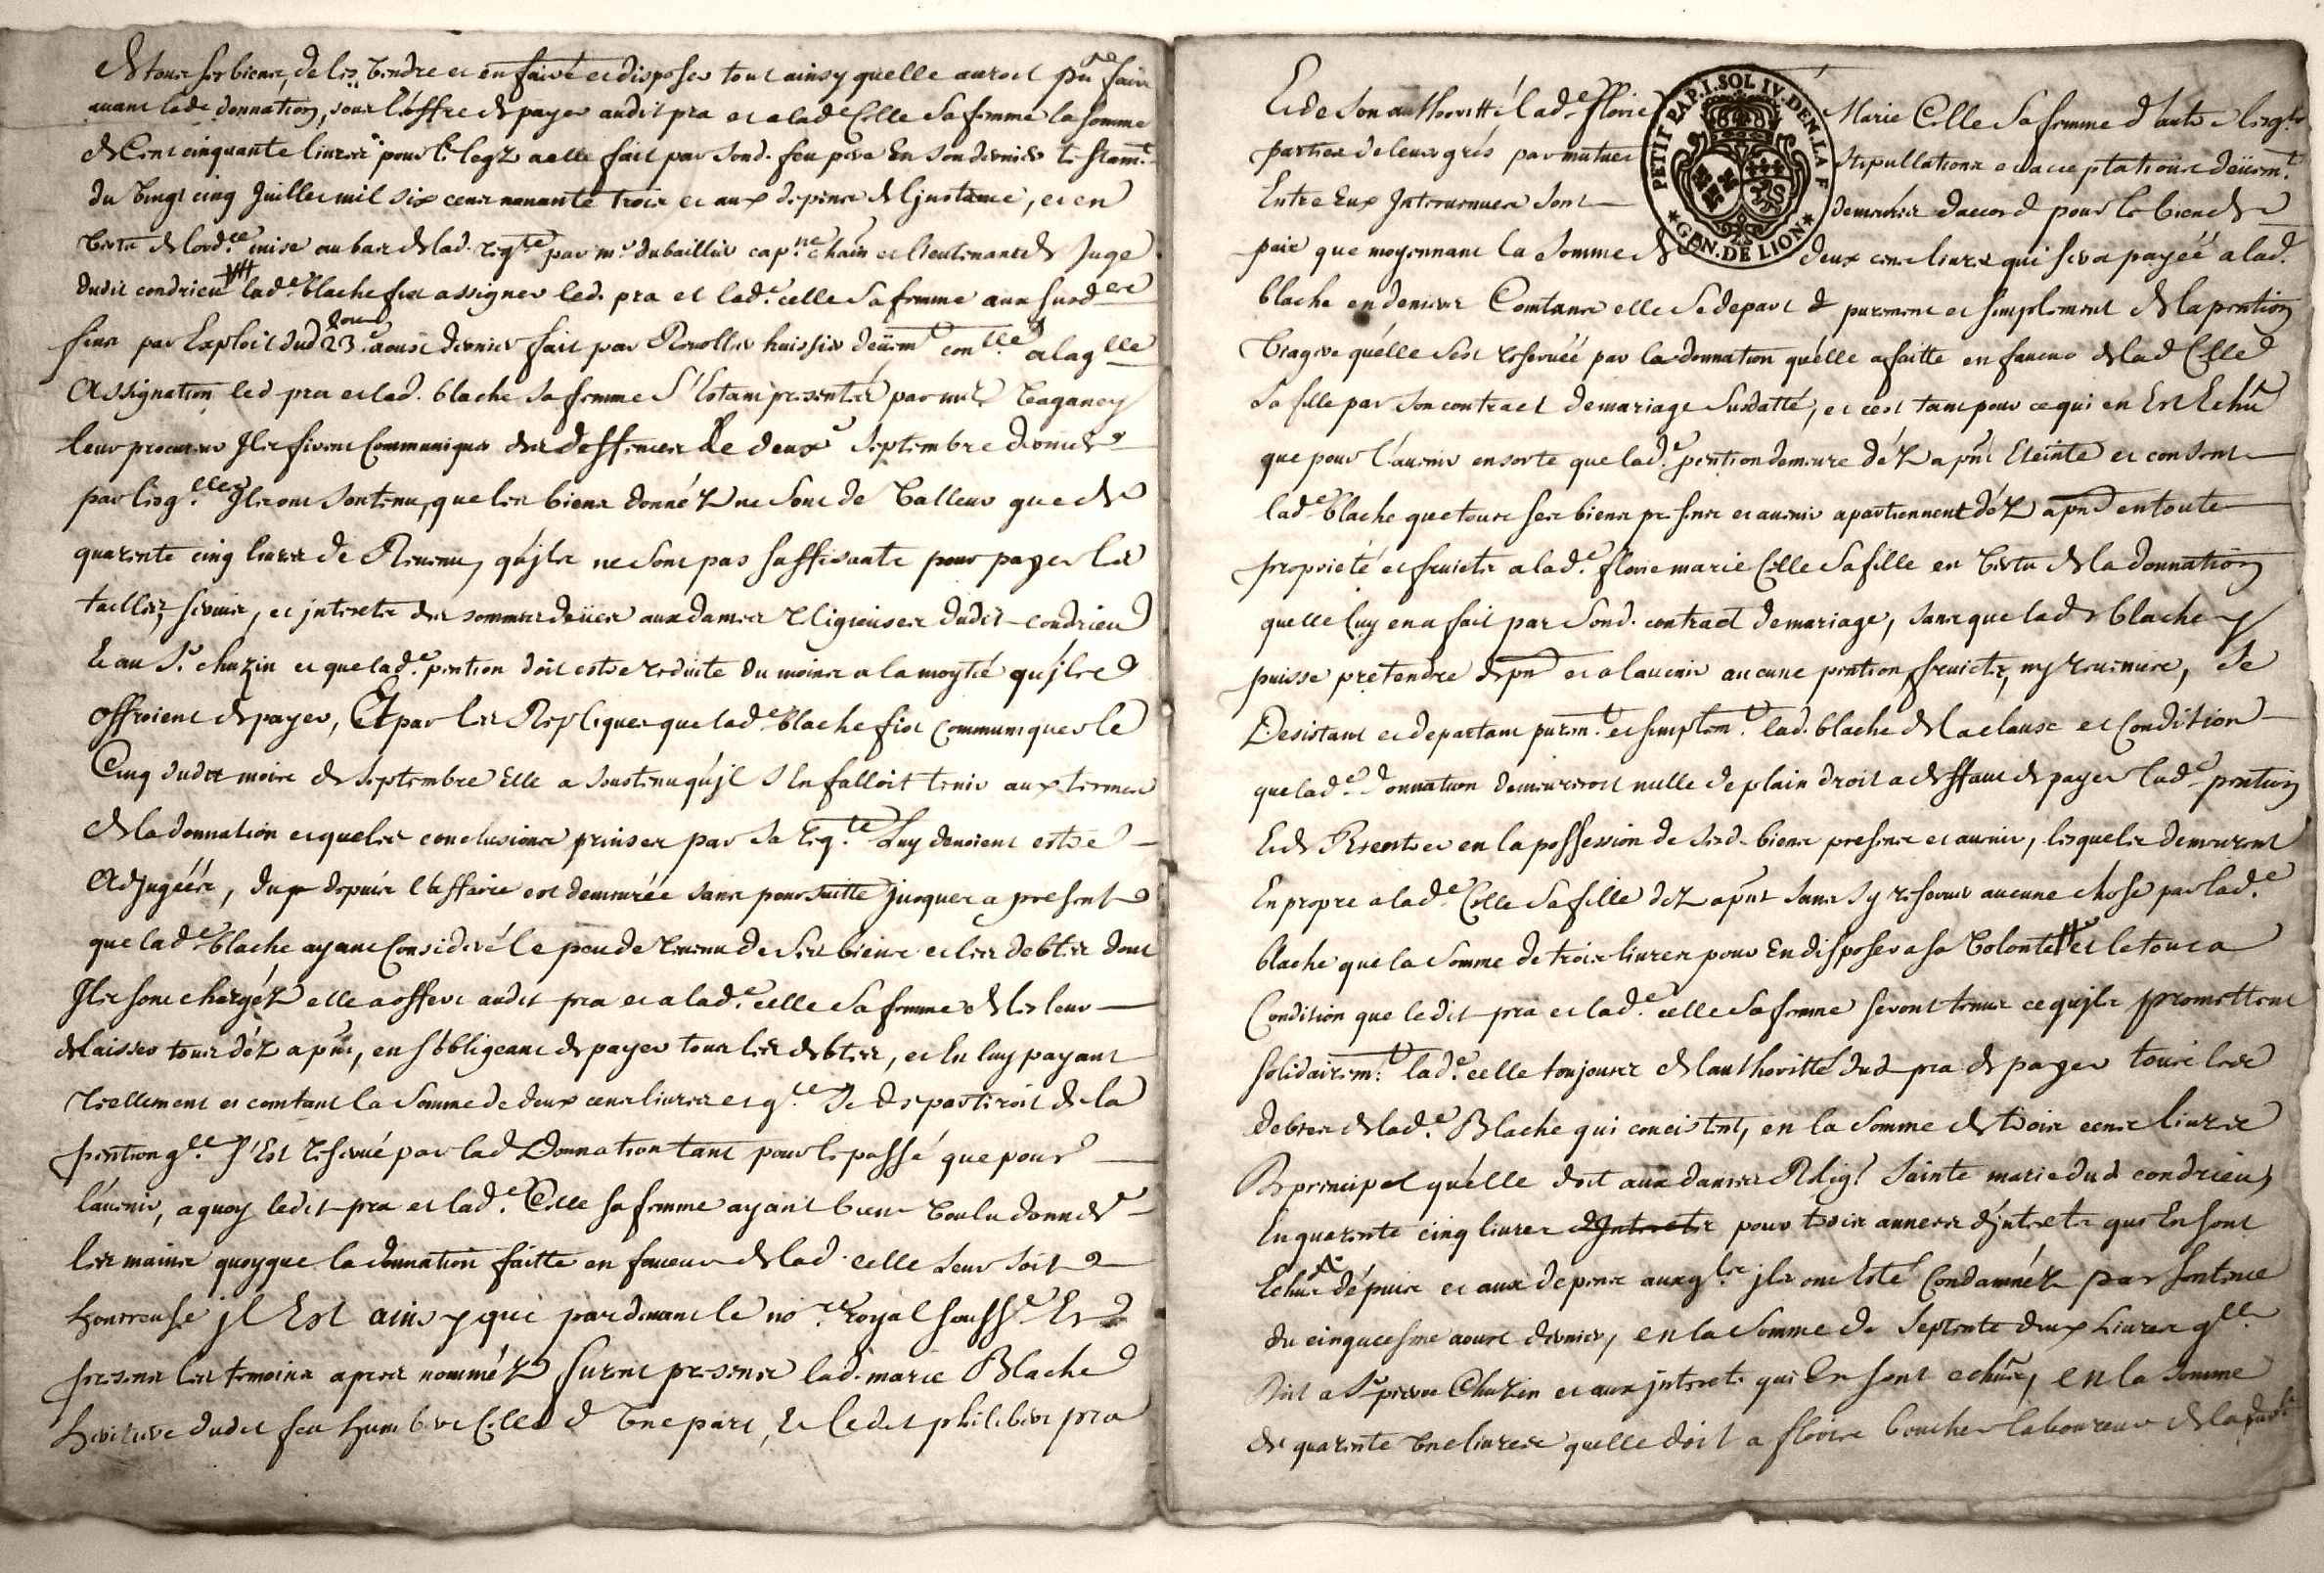 Et tous ses biens, de les vendre et en faire et disposer tout ainsy quelle auroit pu faire
avant lade donnation, sous l'offre de payer audit pra et a lade Celle sa femme la somme
de Cent cinquante livres pour le legz a elle fait par sond. feu pere En son dernier testamt
du vingt cinq Juillet mil six cens nonante trois et aux depens de l'jnstance, et en
vertu de lordce mise au bas de lad. reqte par mr dubaillier capne chatn et lieutenant de Juge
dudit condrieu lade blache fit assigner led. pra et lade celle sa femme aux susdes
fins par Exploit dud 23e aoust dernier fait par Rivollier huissier deüemt conllé a laqlle
Assignation led pra et lad. blache sa femme s'Estant presentés par me vaganay
leur procureur Ils firent Communiquer des deffences Le deuxe septembre dernier
par lesqlles Ils ont soutenu, que les biens donnéz ne sont de valleur que de
quarente cinq livres de Revenu, qu'jls ne sont pas suffisants pour payer les
tailles, servis, et jnterets des sommes deües aux dames religieuses dudit condrieu
Et au Sr chuzin et que lade pention doit estre reduite du moins a la moytié qu'jls
offroient de payer, Et par les Repliques que lade blache fist communiquer le
Cinq dudit mois de septembre Elle a soustenu qu'jl s'En falloit tenir aux termes
de la donnation et que les conclusions prinses par sa reqte Luy devoient estre
Adjugéés, du depuis l'affaire est demeurée sans poursuitte jusques a present
que lade blache ayant Consideré le peu de revenu de ses biens et les debtes dont
Ils sont chargéz elle a offert audit pra et a lade celle sa femme de les leur
delaisser tous déz a pnt, en s'obligeant de payer tous les debtes, et En luy payant
réellement et comtant la somme de deux cens livres et qe se departiroit de la
pention qlle s'Est reservé par lad Donnation tant pour le passé que pour
l'avenir, a quoy ledit pra et lade Celle sa femme ayant bien voulu donner
les mains quoyque la donnation faitte en faveur de lad. celle leur soit
honereuse jl Est ainsy que pardevant le nore royal soussé Et
presens les temoins apres nomméz furent presens lad. marie Blache
heritiere dudit feu humbert Celle d'Une part, Et ledit philibert pra
Et de son authoritté lade fflorie Marie Celle sa femme d'autre lesqles
parties de leurs gréz par mutues stipullations et acceptations deüemt
Entre Eux Intervenues sont demeurés d'accord pour le bien de
paix que moyennant la somme de deux cens livres qui sera payéé a lade
blache en deniers Comtans elle se depart purement et simplement de la pention
viagere qu'elle s'est reservéé par la donnation qu'elle a faitte en faveur de lad Celle
sa fille par son contract de mariage susdatté, et c'est tant pour ce qui en Est Echu
que pour l'avenir en sorte que lade pention demeure déz a pnt Eteinte et consent
lade blache que tous ses biens presens et avenir apartiennent déz a pnt en toute
proprieté et fruicts a lade florie marie Celle sa fille en vertu de la donnation
quelle luy en a fait par sond. contract de mariage, sans que lade blache y
puisse pretendre de pnt et a lavenir aucune pention, fruicts, ny revenus, se
Desistant et departant puremt et simplemt lad. blache de la clause et Condition
que lade donnation demeureroit nulle de plain droit a deffaut de payer lade pention
Et de Rentrer en la possession de sesd. biens presens et avenir, lesquels demeurent
En propre a lade Celle sa fille déz a pnt sans s'y reserver aucune chose par lade
blache que la somme de trois livres pour En disposer a sa volonté et le tout a
Condition que ledit pra et lade celle sa femme seront tenus ce qu'jls promettent
solidairemt lade celle toujours de l'authoritté dud pra de payer tous les
debtes de lade Blache qui concistent, en la somme de trois cens livres
De principal qu'elle doit aux dames Religs sainte marie dud condrieu,
En quarente cinq livres pour trois annees d'jnterets qui En sont
Echus dépuis et aux depens auxqls jls ont Esté Condamnéz par sentence
du cinquiesme aoust dernier, en la somme de septente deux Livres qlle
Doit a Sr pierre Chuzin et aux jnterets qui En sont echus, en la somme
de quarente une livres quelle doit a fleurie boucher laboureur de lad
PETIT PAP. I. SOL IV. DEN. LA F
GEN. DE LION